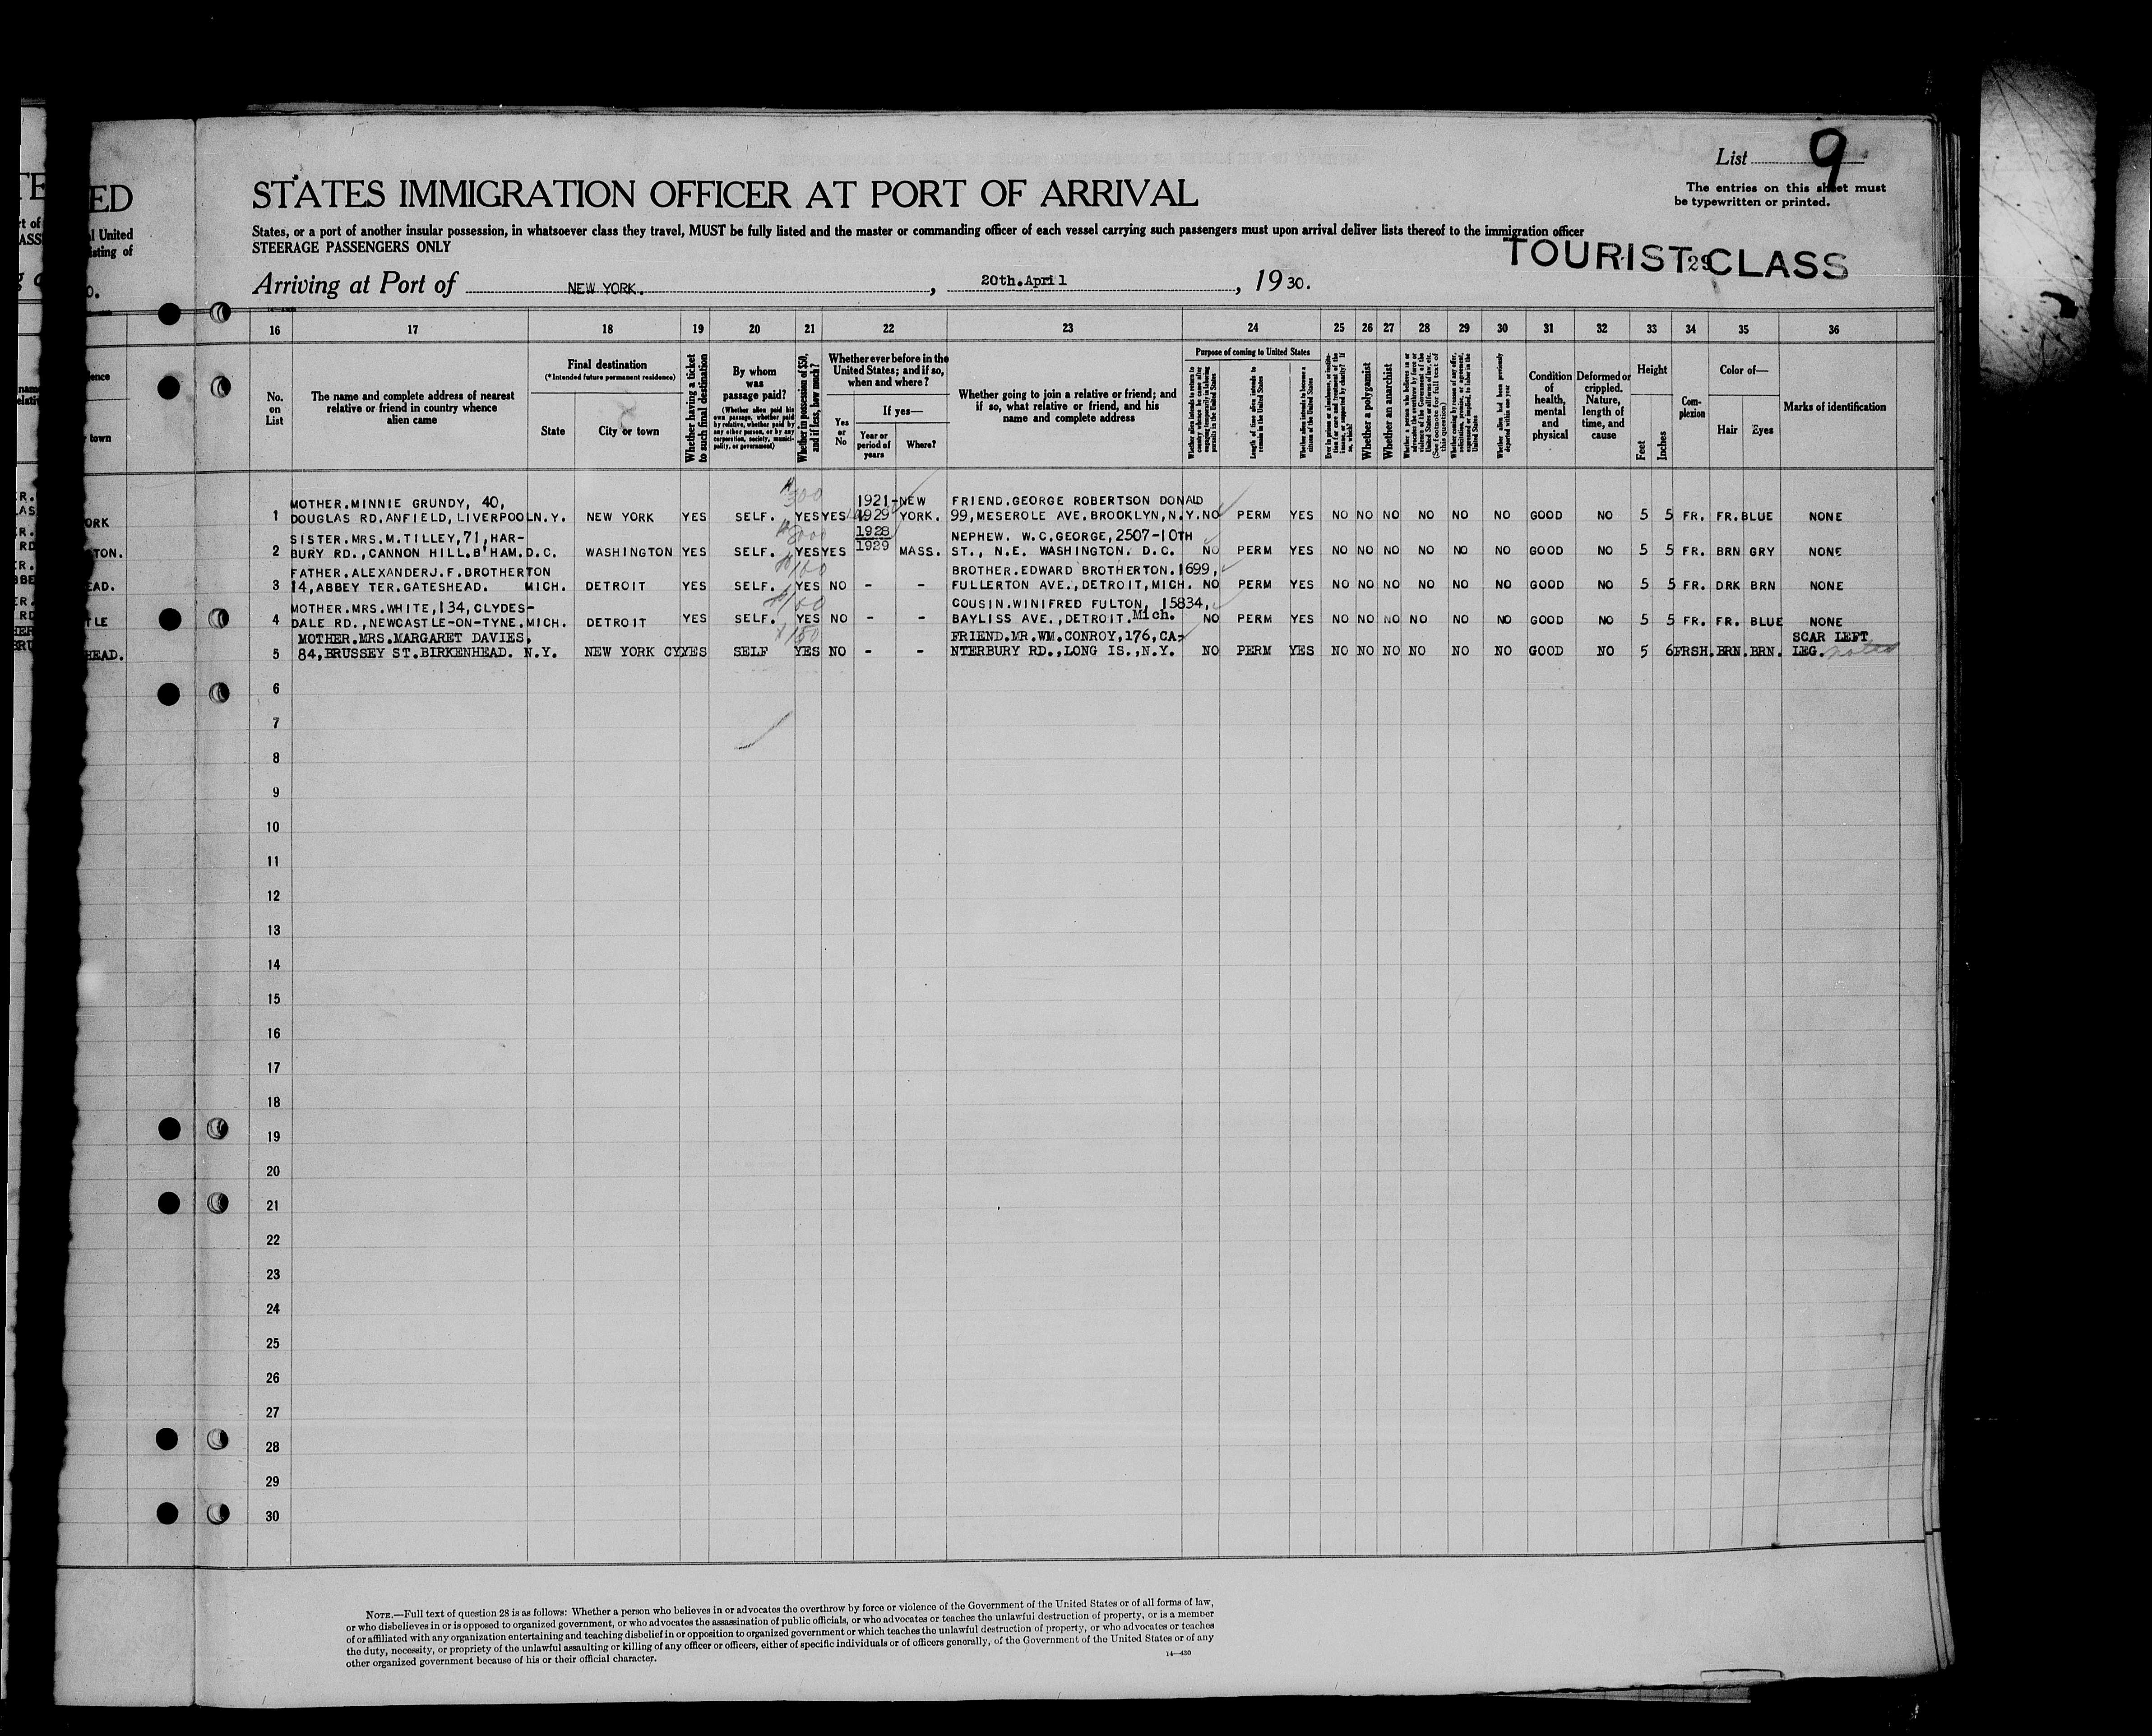 List 9
The entries on this sheet must
be typewritten or printed.
ED
STATES IMMIGRATION OFFICER AT PORT OF ARRIVAL
l United
isting of
States, or a port of another insular possession, in whatsoever class they travel, MUST be fully listed and the master or commanding officer of each vessel carrying such passengers must upon arrival deliver lists thereof to the immigration officer
STEERAGE PASSENGERS ONLY
TOURIST CLASS
29
Arriving at Port of NEW YORK. , 20th.April , 1930.
16 17 18 19 20 21 22 23 24 25 26 27 28 29 30 31 32 33 34 35 36
No.
on
List
The name and complete address of nearest
relative or friend in country whence
alien came
Final destination
(*Intended future permanent residence)
State
City or town
Whether having a ticket
to such final destination
By whom
was
passage paid?
(Whether alien paid his
own passage, whether paid
by relative, whether paid by
any other person, or by any
corporation, society, munici-
pality, or government)
Whether in possession of $50,
and if less, how much?
Whether ever before in the
United States; and if so,
when and where?
Yes
or
No
If yes—
Year or
period of
years
Where?
Whether going to join a relative or friend; and
if so, what relative or friend, and his
name and complete address
Purpose of coming to United States
Whether alien intends to return to
country whence he came after
engaging temporarily in laboring
pursuits in the United States
Length of time alien intends to
remain in the United States
Whether alien intends to become a
citizen of the United States
Whether a polygamist
Whether an anarchist
Whether alien had been previously
deported within one year
Condition
of
health,
mental
and
physical
Deformed or
crippled.
Nature,
length of
time, and
cause
Height
Feet
Inches
Com-
plexion
Color of—
Hair
Eyes
Marks of identification
MOTHER.MINNIE GRUNDY, 40, 300 1921- NEW FRIEND.GEORGE ROBERTSON DONALD
1 DOUGLAS RD,ANFIELD, LIVERPOOL N.Y. NEW YORK YES SELF. YES YES 1929 YORK. 99,MESEROLE AVE.BROOKLYN,N.Y. NO PERM YES NO NO NO NO NO NO GOOD NO 5 5 FR. FR. BLUE NONE
SISTER.MRS.M.TILLEY,71,HAR- 1928 NEPHEW. W.C.GEORGE,2507-10TH
2 BURY RD.,CANNON HILL.B'HAM. D.C. WASHINGTON YES SELF. YES YES 1929 MASS. ST., N.E. WASHINGTON. D.C. NO PERM YES NO NO NO NO NO NO GOOD NO 5 5 FR. BRN GRY NONE
FATHER.ALEXANDERJ.F.BROTHERTON BROTHER.EDWARD BROTHERTON.1699,
3 14,ABBEY TER.GATESHEAD. MICH. DETROIT YES SELF. YES NO - - FULLERTON AVE.,DETROIT,MICH. NO PERM YES NO NO NO NO NO NO GOOD NO 5 5 FR. DRK BRN NONE
MOTHER.MRS.WHITE,134,CLYDES- COUSIN.WINIFRED FULTON, 15834,
4 DALE RD.,NEWCASTLE-ON-TYNE. MICH. DETROIT YES SELF. YES NO - - BAYLISS AVE.,DETROIT.Mich. NO PERM YES NO NO NO NO NO NO GOOD NO 5 5 FR. FR. BLUE NONE
MOTHER.MRS.MARGARET DAVIES, 150 FRIEND.MR.WM.CONROY,176,CA- SCAR LEFT
5 84,BRUSSEY ST.BIRKENHEAD. N.Y. NEW YORK CY YES SELF YES NO - - NTERBURY RD.,LONG IS.,N.Y. NO PERM YES NO NO NO NO NO NO GOOD NO 5 6 FRSH. BRN. BRN. LEG. noted
6
7
8
9
10
11
12
13
14
15
16
17
18
19
20
21
22
23
24
25
26
27
28
29
30
NOTE.—Full text of question 28 is as follows: Whether a person who believes in or advocates the overthrow by force or violence of the Government of the United States or of all forms of law,
or who disbelieves in or is opposed to organized government, or who advocates the assassination of public officials, or who advocates or teaches the unlawful destruction of property, or is a member
of or affiliated with any organization entertaining and teaching disbelief in or opposition to organized government or which teaches the unlawful destruction of property, or who advocates or teaches
the duty, necessity, or propriety of the unlawful assaulting or killing of any officer or officers, either of specific individuals or of officers generally, of the Government of the United States or of any
other organized government because of his or their official character.
14—430